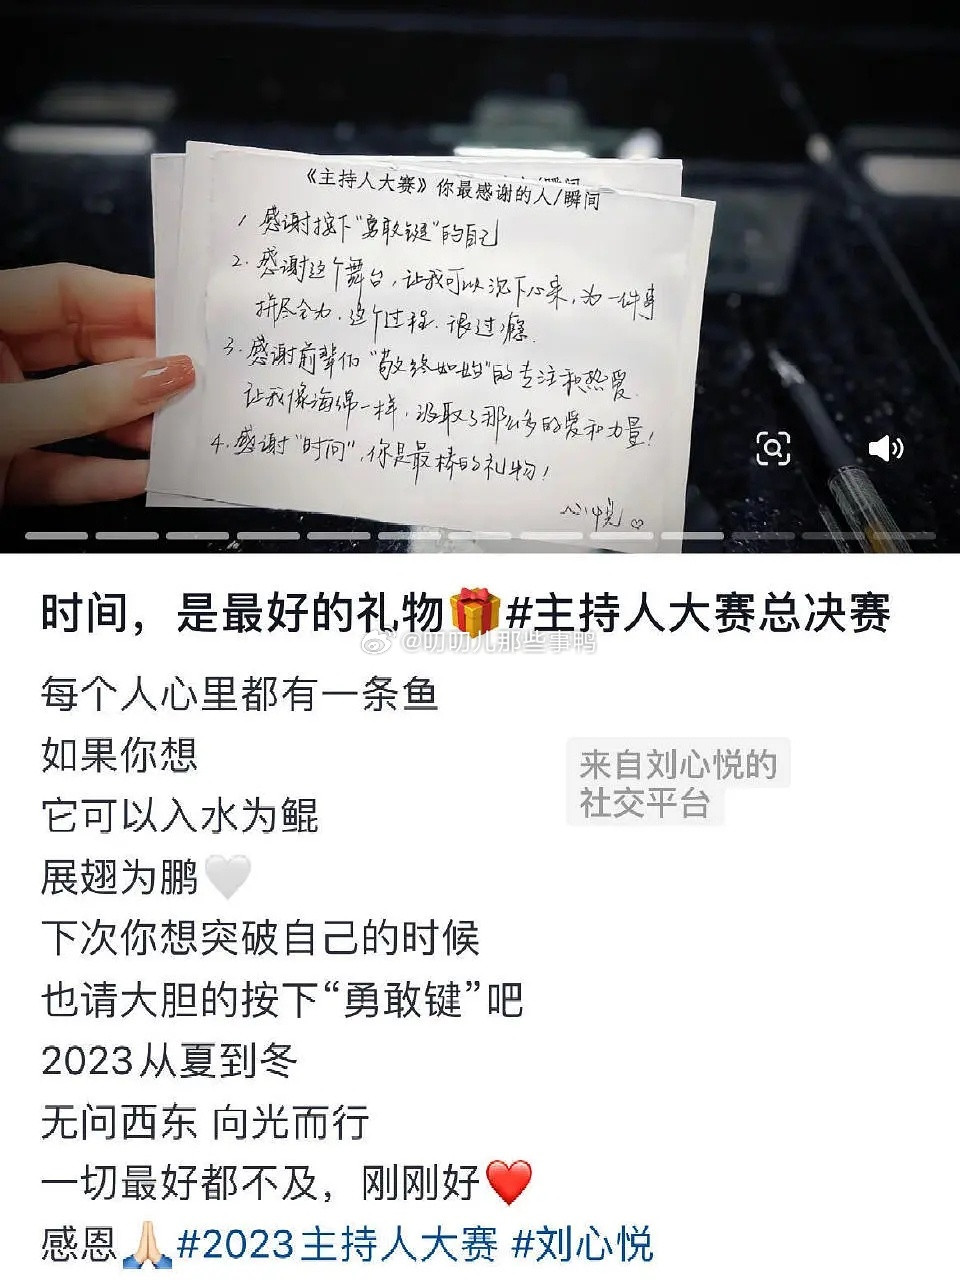 《主持人大赛》你最感谢的人/瞬间
1 感谢按下“勇敢键”的自己
2. 感谢这个舞台，让我可以沉下心来，为一件事
拼尽全力，这个过程，很过瘾.
3. 感谢前辈们“敬终如始”的专注和热爱.
让我像海绵一样，汲取了那么多的爱和力量！
4. 感谢“时间”，你是最棒的礼物！
心悦
时间，是最好的礼物🎁#主持人大赛总决赛
@叨叨儿那些事鸭
每个人心里都有一条鱼
如果你想
它可以入水为鲲
展翅为鹏🤍
来自刘心悦的
社交平台
下次你想突破自己的时候
也请大胆的按下“勇敢键”吧
2023从夏到冬
无问西东 向光而行
一切最好都不及，刚刚好❤️
感恩🙏🏻#2023主持人大赛 #刘心悦